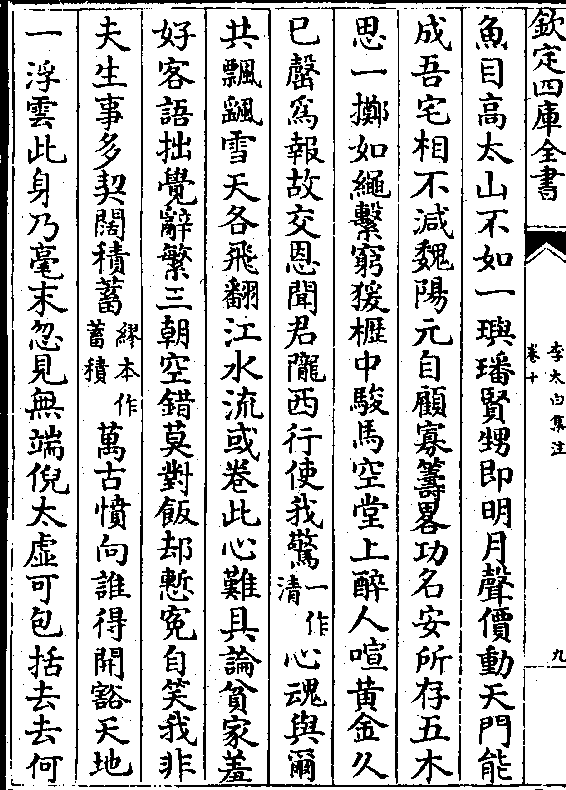 欽定四庫全書
李太白集注
卷十
九
魚目高太山不如一璵璠賢甥即明月聲價動天門能
成吾宅相不減魏陽元自顧寡籌畧功名安所存五木
思一擲如繩繫窮猨櫪中駿馬空堂上醉人喧黄金久
已罄爲報故交恩聞君隴西行使我驚一作清心魂與爾
共飄颻雪天各飛翻江水流或卷此心難具論貧家羞
好客語拙覺辭繁三朝空錯莫對飯却慙寃自笑我非
夫生事多契闊積蓄繆本作蓄積萬古憤向誰得開豁天地
一浮雲此身乃毫末忽見無端倪太虛可包括去去何